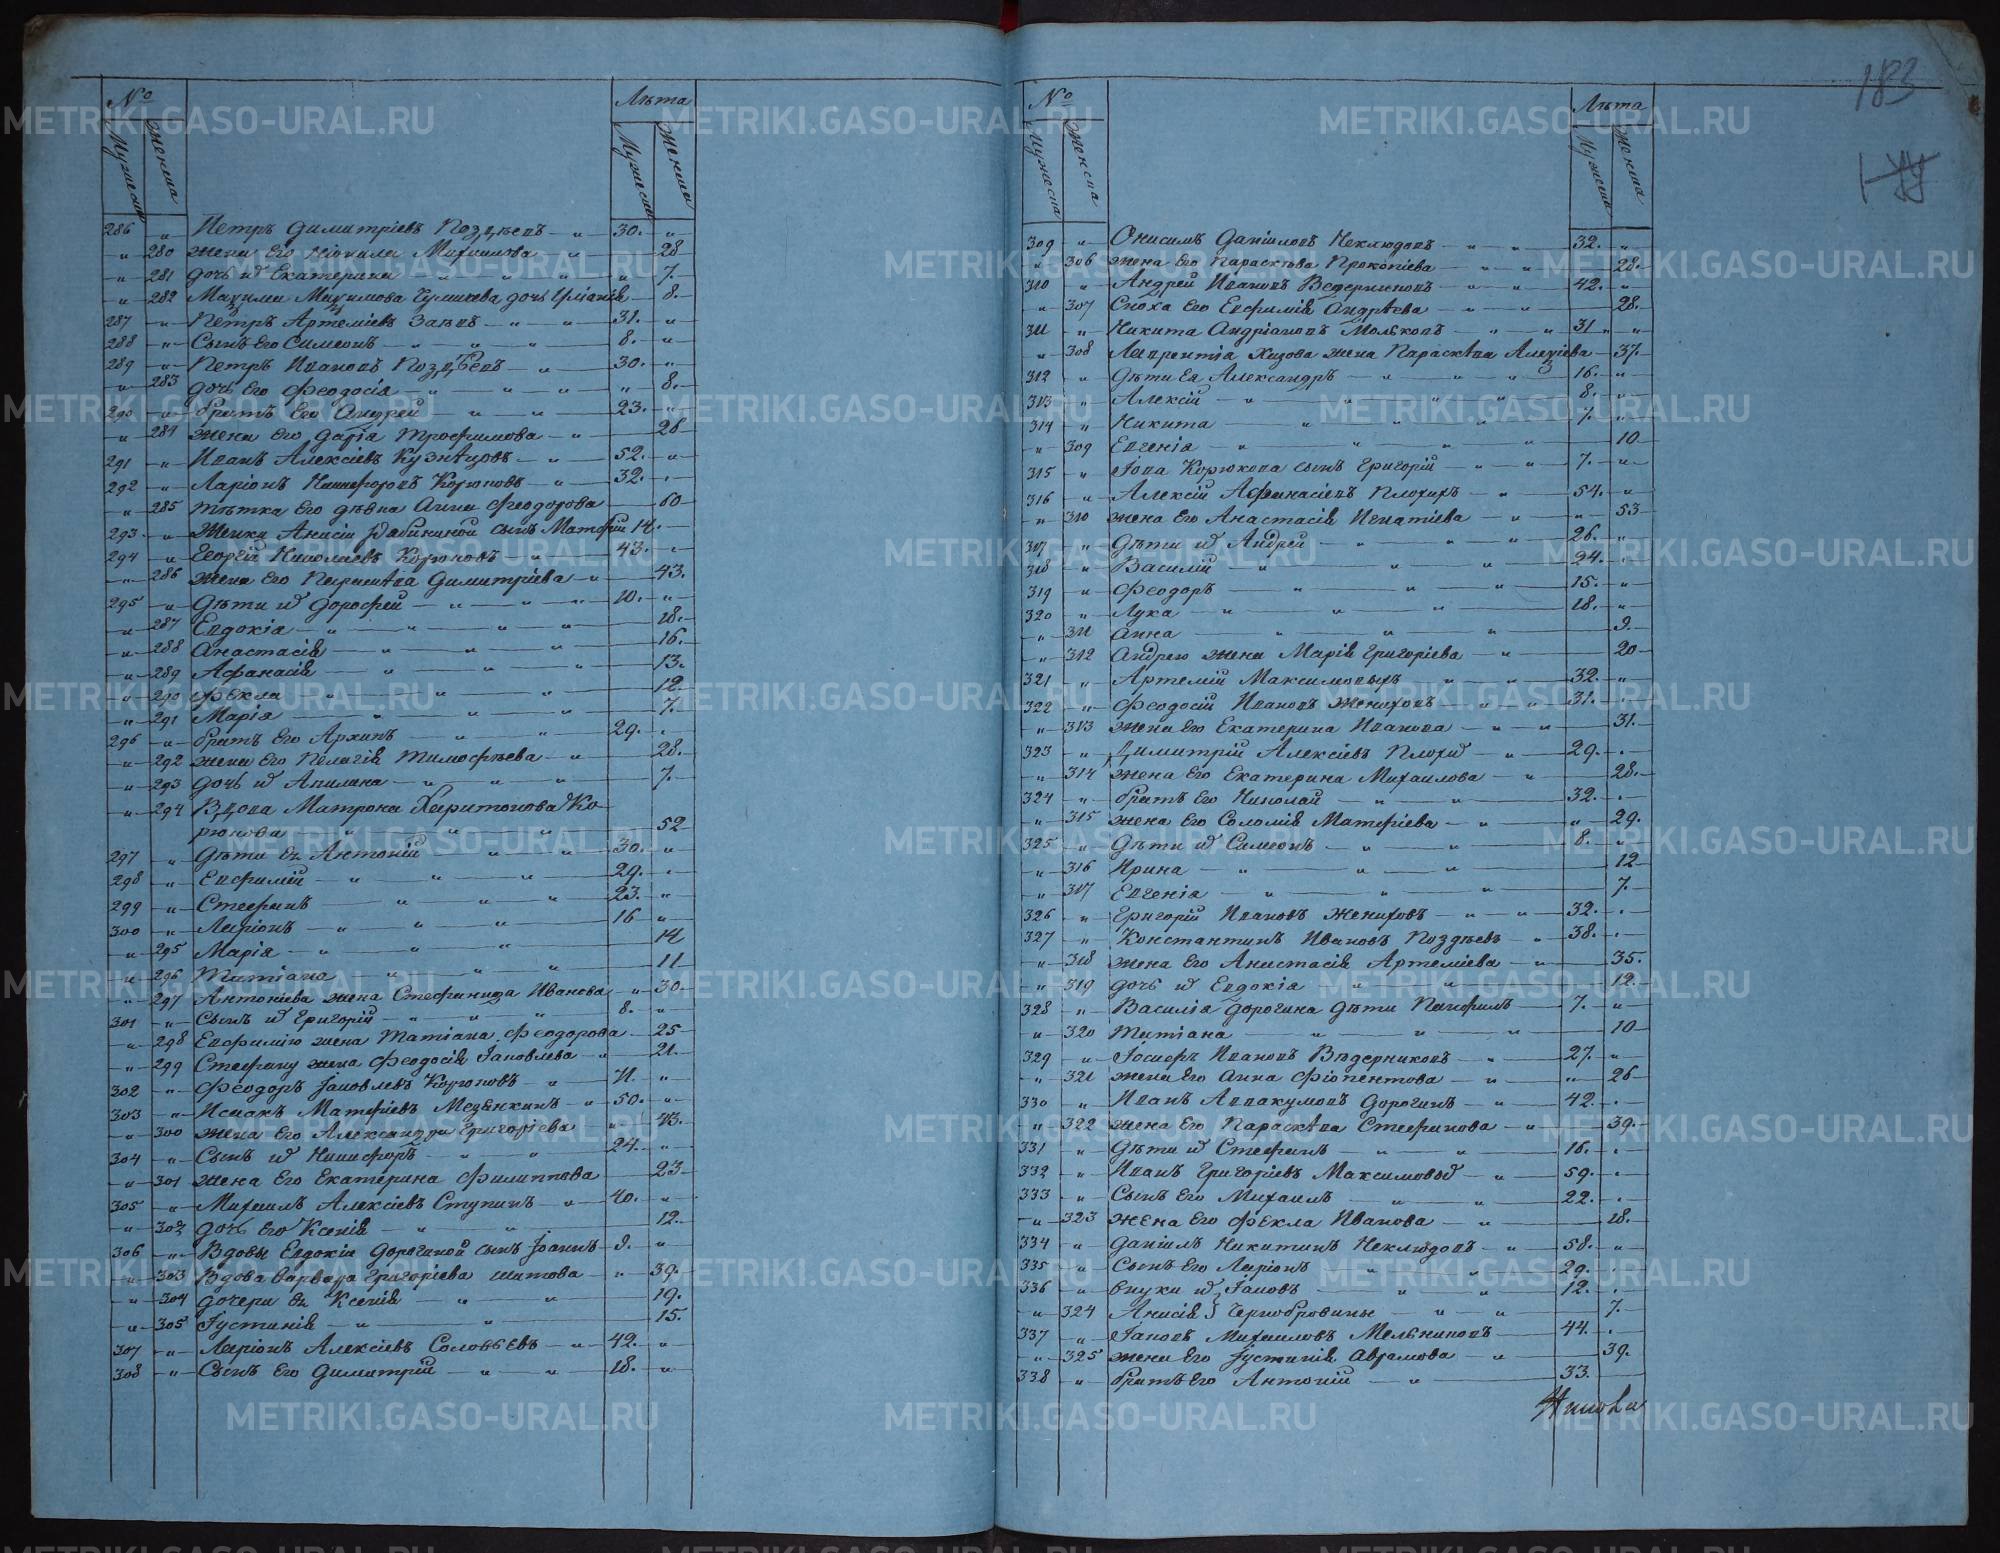 № Лѣта
Мужеска Женска Мужеска Женска
286 „ Петръ Димитріевъ Поздѣевъ — „ 30. „
„ 280 жена Его Неонила Михаилова „ 28
„ 281 дочь их Екатерина „ „ „ 7.
„ 282 дочь 8.
287 „ Петръ Артеміевъ Заевъ — „ — „ 31. „
288 „ Сынъ Его Симеонъ — „ „ „ 8. „
289 „ Петръ Ивановъ Поздѣевъ — „ 30. „
„ 283 дочь Его Феодосія — „ „ „ „ 8.
290 „ братъ Его Андрей — „ — „ 23. „
„ 284 жена Его Дарія Трофимова — „ 28
291 „ Иванъ Алексіевъ Кузнѣцовъ — „ 52. „
292 „ Ларіонъ Никифоровъ Корюковъ — „ 32. „
„ 285 тѣтка Его дѣвка Анна Феодорова 60
293. „ Женки Анисіи Рябининой сынъ Матфій 14. —
294 „ Георгій Николаевъ Корюковъ „ 43. „
„ 286 жена Его Параскѣва Димитріева „ 43.
295 „ Дѣти их Дорофей — „ „ „ 10. „
„ 287 Евдокія — „ — „ „ „ 18.
„ 288 Анастасія — „ „ „ 16.
„ 289 Афанасія — „ „ „ 13.
„ 290 Фекла „ „ „ 12.
„ 291 Марія — „ „ „ 7.
296 „ братъ Его Архипъ — „ „ 29. „
„ 292 жена Его Пелагія Тимофѣева — „ 28.
„ 293 дочь их Акилина — „ „ „ 7.
„ 294 Вдова Матрона Харитонова Ко-
рюкова „ „ „ 52
297 „ Дѣти ея Антоній „ „ 30. „
298 „ Евфимій — „ „ „ 29. „
299 „ Стефанъ — „ „ „ 23. „
300 „ Ларіонъ — „ „ „ 16 „
„ 295 Марія — „ „ „ 14
„ 296 Татіана „ „ „ 11
„ 297 Антоніева жена Стефанида Иванова „ 30
301 „ Сынъ их Григорій — „ „ „ 8. „
„ 298 Евфимію жена Татіана Феодорова 25
„ 299 Стефану жена Феодосія Іаковлева „ 21.
302 „ Феодоръ Іаковлевъ Корюковъ — „ 71. „
303 „ Исаакъ Матфіевъ Мезенкинъ — „ 50. „
„ 300 жена Его Александра Григоріева „ 43.
304 „ Сынъ их Никифоръ — „ „ 24. „
„ 301 жена Его Екатерина Филиппова 23
305 „ Михаилъ Алексіевъ Ступинъ — „ 40. „
„ 302 дочь Его Ксенія — „ „ 12.
306 „ Вдовы Евдокіи Дорогиной сынъ Іоаннъ 9. „
„ 303 Вдова Варвара Григоріева Шитова „ 39.
„ 304 дочери ея Ксенія „ „ 19.
„ 305 Іустинія — „ „ 15.
307 „ Ларіонъ Алексіевъ Соловьевъ — „ 42. „
308 „ Сынъ Его Димитрій — „ „ 18. „
183
№ Лѣта
Мужеска Женска Мужеска Женска
309 „ Онисимъ Даніиловъ Неклюдовъ — „ „ 32. „
„ 306 жена Его Параскѣва Прокопіева — „ „ 28.
310 „ Андрей Ивановъ Ведерниковъ — „ „ 42. „
„ 307 Сноха Его Евфимія Андрѣева — „ „ 28.
311 „ Никита Андріановъ Мольковъ — „ „ 31 „
„ 308 Лаврентія Хизова жена Параскѣва Алексіева 37.
312 „ Дѣти Ея Александръ — „ „ „ 16. „
313 „ Алексій — „ „ „ „ 8. „
314 „ Никита — „ „ „ „ 7. „
„ 309 Евгенія „ „ „ „ 10
315 „ Іова Корюкова сынъ Григорій — „ „ 7. „
316 „ Алексій Афанасіевъ Плохихъ — „ 54. „
„ 310 жена Его Анастасія Игнатіева „ „ 53
317 „ Дѣти их Андрей — „ „ „ 26. „
318 „ Василій „ „ „ 24. „
319 „ Феодоръ — „ „ „ 15. „
320 „ Лука — „ „ „ 18. „
„ 311 Анна — „ „ „ 9.
„ 312 Андрею жена Марія Григоріева — „ 20
321 „ Артемій Максимовыхъ „ „ 32. „
322 „ Феодосій Ивановъ Жениховъ — „ „ 31. „
„ 313 жена Его Екатерина Иванова — „ „ 31.
323 „ Димитрій Алексіевъ Плохих — „ 29. „
„ 314 жена Его Екатерина Михаилова — „ 28.
324 „ братъ Его Николай — „ „ 32. „
„ 315 жена Его Соломія Матфіева — „ „ 29.
325 „ Дѣти их Симеонъ — „ „ 8. „
„ 316 Ирина — „ „ „ 12
„ 317 Евгенія — „ „ „ 7.
326 „ Григорій Ивановъ Жениховъ — „ „ 32. „
327 „ Константинъ Ивановъ Поздѣевъ „ 38. „
„ 318 жена Его Анастасія Артеміева — „ 35.
„ 319 дочь их Евдокія „ „ 12.
328 „ Василія Дорогина дѣти Памфилъ — 7. „
„ 320 Татіана „ „ „ 10
329 „ Іосифъ Ивановъ Вѣдерниковъ „ 27. „
„ 321 жена Его Анна Фіопентова — „ „ 26
330 „ Иванъ Аввакумовъ Дорогинъ — „ 42. „
„ 322 жена Его Параскѣва Стефанова — „ 39.
331 „ Дѣти их Стефанъ „ „ 16. „
332 „ Иванъ Григоріевъ Максимовых — „ 59. „
333 „ Сынъ Его Михаилъ „ „ 22. „
„ 323 жена Его Фекла Иванова — „ 18.
334 „ Даніилъ Никитинъ Неклюдовъ — „ 58. „
335 „ Сынъ Его Ларіонъ „ „ 29. „
336 „ внуки их Іаковъ „ „ 12. „
„ 324 Анисія } Чернобровины — „ „ 7.
337 „ Іаковъ Михаиловъ Мельниковъ — 44. „
„ 325 жена Его Іустинія Аврамова — „ 39.
338 „ братъ Его Антоній — „ 33.
METRIKI.GASO-URAL.RU